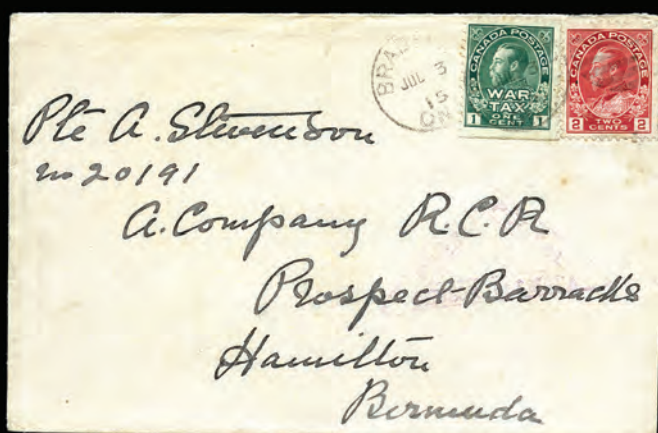 CANADA POSTAGE
WAR TAX
ONE CENT
1 1
CANADA POSTAGE
TWO CENTS
2 2
JUL 3
15
ON
Pte A. Stevenson
no 20191
A. Company R.C.R
Prospect Barracks
Hamilton
Bermuda